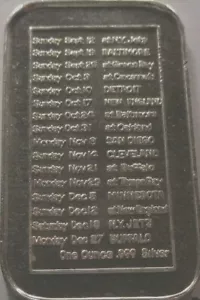 Sunday Sept 12 at N.Y. Jets
Sunday Sept 19 BALTIMORE
Sunday Sept 26 at Green Bay
Sunday Oct 3 at Cincinnati
Sunday Oct 10 DETROIT
Sunday Oct 17 NEW ENGLAND
Sunday Oct 24 at Baltimore
Sunday Oct 31 at Oakland
Monday Nov 8 SAN DIEGO
Sunday Nov CLEVELAND
Sunday Nov 21 at Buffalo
Monday Nov 29 at Tampa Bay
Sunday Dec 5 MINNESOTA
Sunday Dec 12 at New England
Saturday Dec 18 N.Y. JETS
Monday Dec 27 BUFFALO
One Ounce .999 Silver